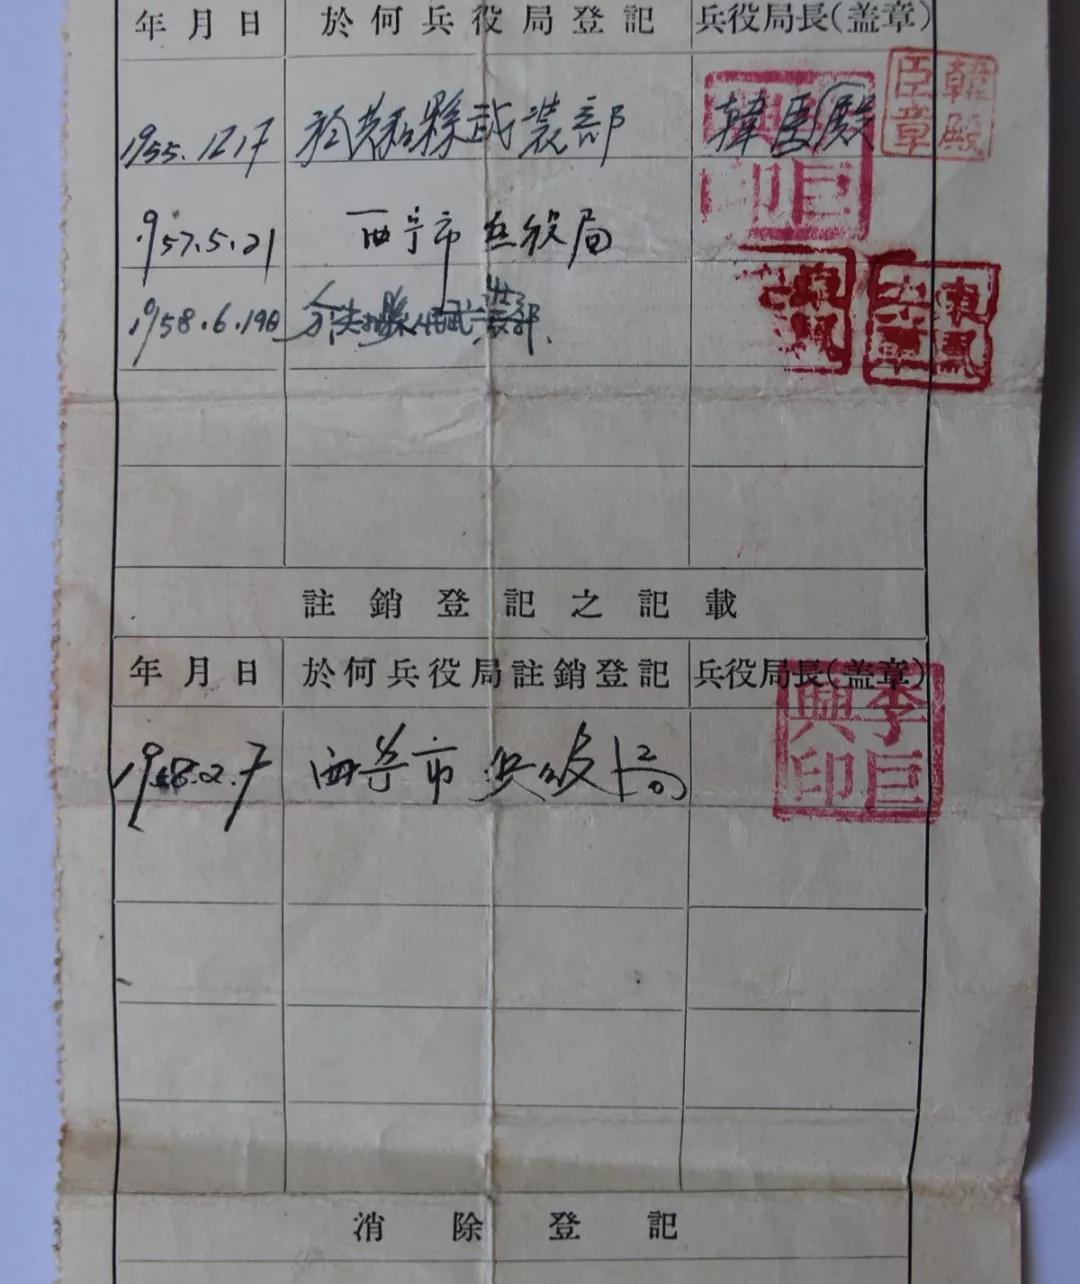 年月日 於何兵役局登記 兵役局長(盖章)
1955.12.17 於 縣武裝部 韓殿臣
韓殿臣章
1957.5.21 西宁市兵役局
李巨興印
1958.6.19日 縣 武裝部
東鳳
註銷登記之記載
年月日 於何兵役局註銷登記 兵役局長(盖章)
1958.2.7 西宁市兵役局
李巨興印
消除登記